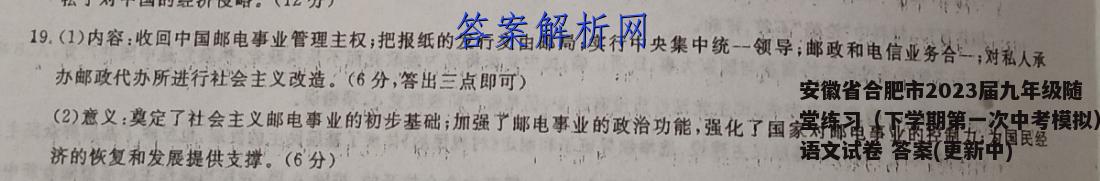 松了对中国的经济侵略。(12分)
答案解析网
19.(1)内容:收回中国邮电事业管理主权;把报纸的发行交由邮局;实行中央集中统一领导;邮政和电信业务合一;对私人承
办邮政代办所进行社会主义改造。(6分,答出三点即可)
(2)意义:奠定了社会主义邮电事业的初步基础;加强了邮电事业的政治功能,强化了国家对邮电事业的控制力;为国民经
济的恢复和发展提供支撑。(6分)
安徽省合肥市2023届九年级随
堂练习(下学期第一次中考模拟)
语文试卷 答案(更新中)